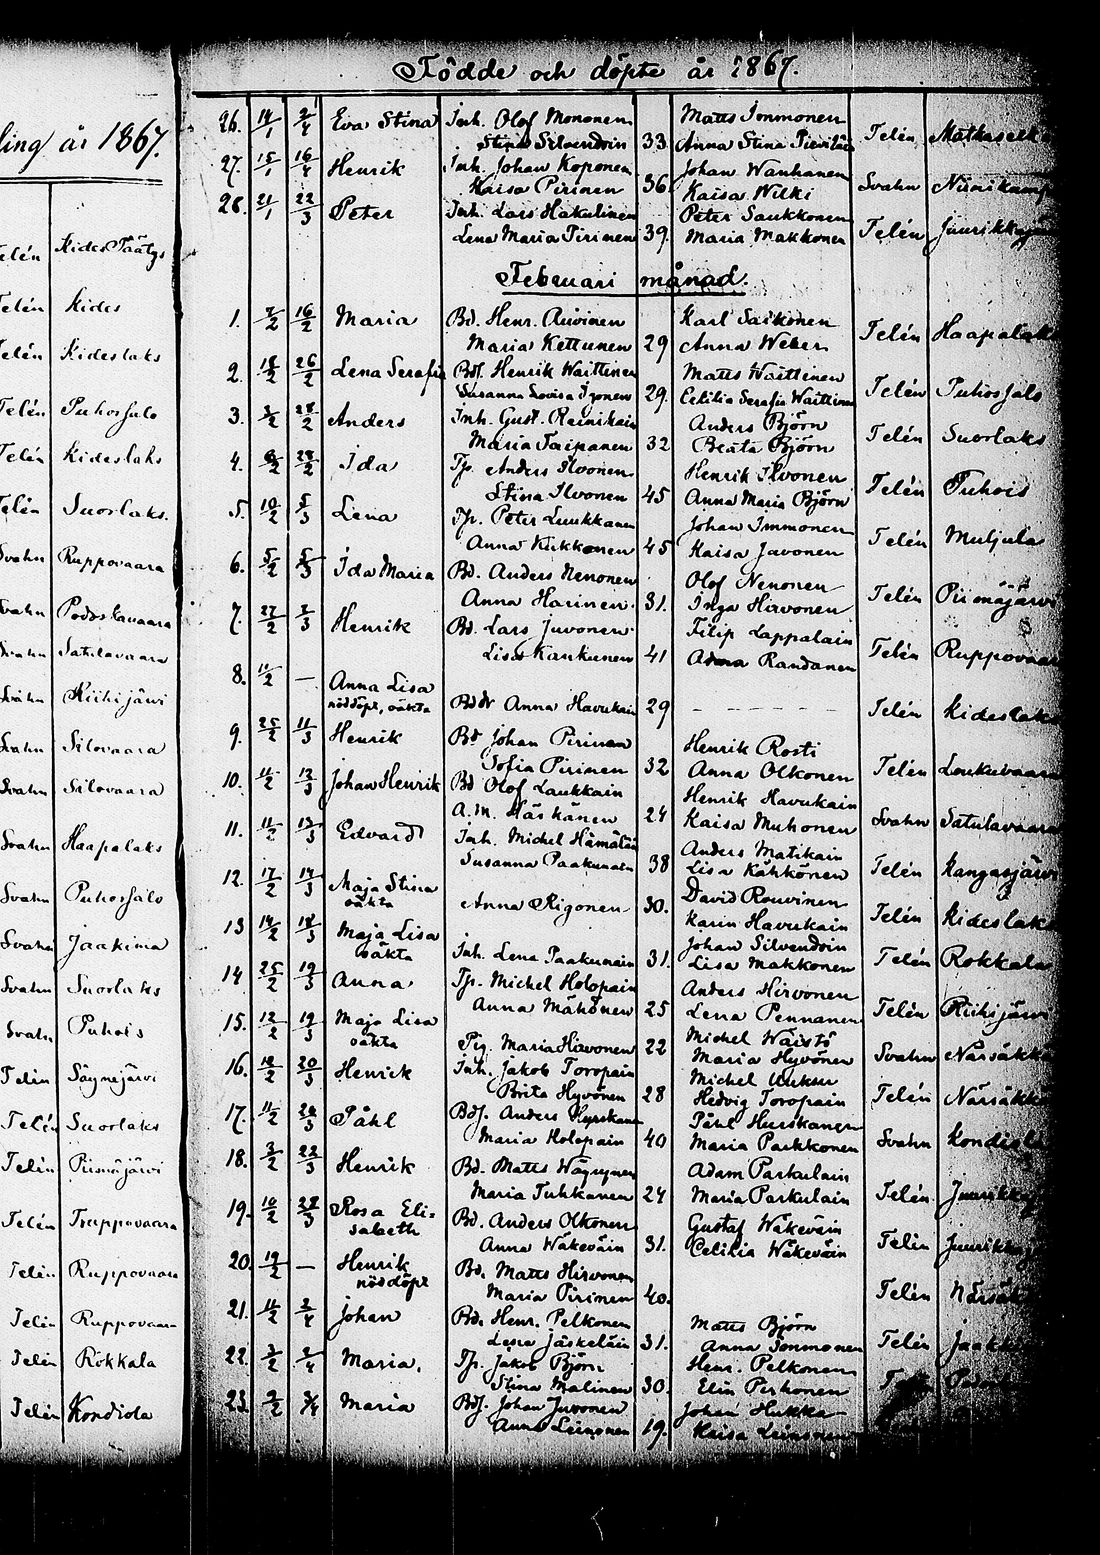 ling år 1867.
Telén Kides Päätys
Telén Kides
Telén Kideslaks
Telén Puhossalo
Telén Kideslaks
Telén Suorlaks.
Svahn Ruppovaara
Svahn Podoskavaara
Svahn Satulavaara
Svahn Riihijärvi
Svahn Silovaara
Svahn Silovaara
Svahn Haapalaks
Svahn Puhossalo
Svahn Jaakima
Svahn Suorlaks
Svahn Puhois
Telén Säynejärvi
Telén Suorlaks
Telén Piimäjärvi
Telén Truppovaara
Telén Ruppovaara
Telén Ruppovaara
Telén Rokkala
Telén Kondiola
Födde och döpte år 1867.
26. 14/1 2/4 Eva Stina Inh. Olof Mononen Matts Immonen
Stina Silvendoin 33. Anna Stina Telén
27. 15/1 16/4 Henrik Inh. Johan Koponen Johan Wanhanen
Kaisa Pirinen 36 Kaisa Wilki Svahn
28. 21/1 22/3 Peter Inh. Lars Hakulinen Peter Saukkonen
Lena Maria Pirinen 39. Maria Makkonen Telén
Februari månad.
1. 7/2 16/2 Maria Bd. Henr. Auvinen Karl Saikonen
Maria Kettunen 29 Anna Weber Telén Haapalaks
2. 18/2 26/2 Lena Serafia Bdf. Henrik Waittinen Matts Waittinen
Susanna Lovisa 29. Cecilia Serafia Waittinen Telén Puhossalo
3. 3/2 28/2 Anders Inh. Gust. Reinikain Anders Björn
Maria Taipanen 32 Beata Björn Telén Suorlaks
4. 28/2 Ida Tp. Anders Ilvonen Henrik Ilvonen
Stina Ilvonen 45 Anna Maria Björn Telén Puhois
5. 10/2 5/3 Lena Tp. Peter Luukkanen Johan Immonen
Anna Kukkonen 45 Kaisa Javonen Telén Muljula
6. 5/2 5/3 Ida Maria Bd. Anders Nenonen Olof Nenonen
Anna Harinen. 31. Inga Hirvonen Telén Piimäjärvi
7. 27/2 7/3 Henrik Bd. Lars Juvonen Filip Lappalain
Lisa Kankunen 41 Adma Randanen Telén Ruppovaara
8. 11/2 — Anna Lisa
nöddöpt, oäkta Bddr Anna Havukain 29 - - - - - - Telén Kideslaks
9. 25/2 11/3 Henrik Bd Johan Pirinen Henrik Rosti
Sofia Pirinen 32 Anna Olkonen Telén Loukuvaara
10. 11/2 13/3 Johan Henrik Bd Olof Laukkain Henrik Havukain
A.M. Häskänen 24 Kaisa Muhonen Svahn Satulavaara
11. 11/2 13/3 Edvard Inh. Michel Hämäläi Anders Matikain
Susanna Paakunain 38 Lisa Kähkönen Telén Kangasjärvi
12. 17/2 17/3 Maja Stina David Rouvinen
oäkta Anna Rigonen 30. Karin Havukain Telén Kideslaks
13 14/2 18/3 Maja Lisa Johan Silvendoin
oäkta Inh. Lena Paakunain 31. Lisa Makkonen Telén Rokkala
14 25/2 19/3 Anna Tp. Michel Holopain Anders Hirvonen
Anna Mähönen 25 Lena Pennanen Telén Riihijärvi
15. 12/2 19/3 Maja Lisa Michel Wäistö
oäkta Pig. Maria Hirvonen 22 Maria Hyvönen Svahn Närsäkkä
16. 18/2 20/3 Henrik Inh. Jakob Toropain Michel
Brita Hyvönen 28 Hedvig Toropain Telén Närsäkkä
17. 11/2 20/3 Påhl Bdf. Anders Hurskanen Påhl Hurskanen
Maria Holopain 40 Maria Parkkonen Svahn Kondiola
18. 3/2 22/3 Henrik Bd. Matts Wäyrynen Adam Parkulain
Maria Tuhkanen 24 Maria Parkulain Telén
19. 10/2 28/3 Rosa Eli-
sabeth Bd. Anders Olkonen Gustaf Wäkeväin
Anna Wäkeväin 31. Cecilia Wäkeväin Telén
20. 19/2 — Henrik
nöddöpt Bd. Matts Hirvonen
Maria Pirinen 40. Telén
21. 11/2 2/4 Johan Bd. Henr. Pelkonen Matts Björn
Lena Jäskeläin 31. Anna Immonen Telén
22. 3/2 2/4 Maria. Tp. Jakob Björn Henr. Pelkonen
Stina Malinen 30. Elin Pirhonen
23. 3/4 Maria Bdf. Johan Juvonen Johan Hukka
Anna Leinonen 19. Kaisa Leinonen